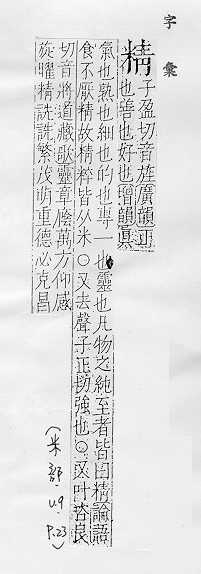 字彙
精
子盈切音旌廣韻正
也善也好也增韻眞
氣也熟也細也的也專一也靈也凡物之純至者皆曰精論語
食不厭精故精粹皆从米○又去聲子正切強也○又叶咨良
切音將道藏歌靈章蔭萬方仰感
旋曜精詵詵繁茂萌重德必克昌
(米部. u.9. P.23)